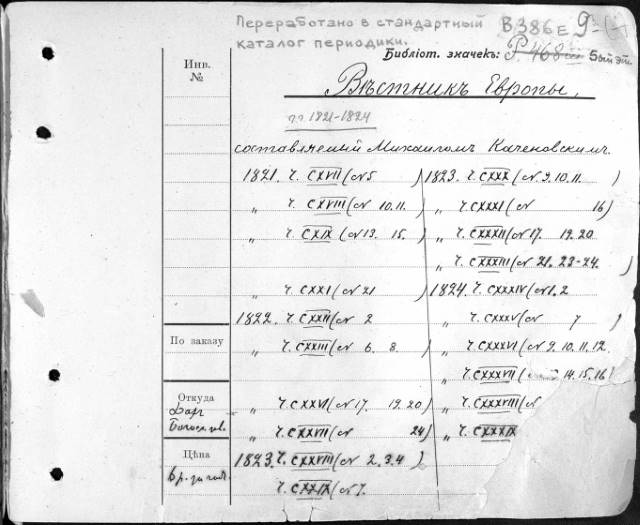 Переработано в стандартный
каталог периодики.
В386Е 9
Библіот. значекъ: Р 468 5ый эт.
Инв.
№
Вѣстникъ Европы,
гг. 1821-1824
составляемый Михаиломъ Каченовскимъ
1821. Ч. CXVII (№5 )
„ Ч. CXVIII (№ 10. 11. )
„ Ч. CXIX (№13. 15. )
„ Ч. CXXI (№21 )
1822. Ч. CXXII (№ 2
„ Ч. CXXIII (№ 6. 8. )
„ Ч. CXXVI (№17. 19. 20)
„ Ч. CXXVII (№ 24)
1823. Ч. CXXVIII (№ 2. 3. 4 )
„ Ч. CXXIX (№7.
1823. Ч. CXXX (№9. 10. 11. )
„ Ч. CXXXI (№ 16)
„ Ч. CXXXII (№17. 19. 20
„ Ч. CXXXIII (№ 21. 23-24. )
1824. Ч. CXXXIV (№1. 2
„ Ч. CXXXV (№ 7 )
„ Ч. CXXXVI (№9. 10. 11. 12.
„ Ч. CXXXVII ( 14. 15. 16)
„ Ч. CXXXVIII (№
„ Ч. CXXXIX
По заказу
Откуда
Даръ
Цѣна